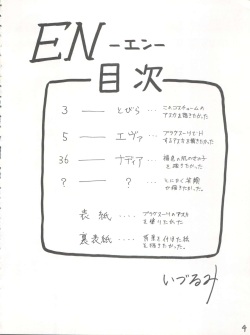 EN -エン-
目次
3 — とびら … このコスチュームの
アスカを描きたかった
5 — エヴァ … プラグスーツでH
するアスカを描きたかった
36 — ナディア … 褐色の肌の女の子
を描きたかった
? — ? … とにかく全裸
が描きたかった。
表紙 …… プラグスーツのアスカ
を塗りたかった
裏表紙 …… 背景を付けた絵
を描きたかった。
いづるみ
4